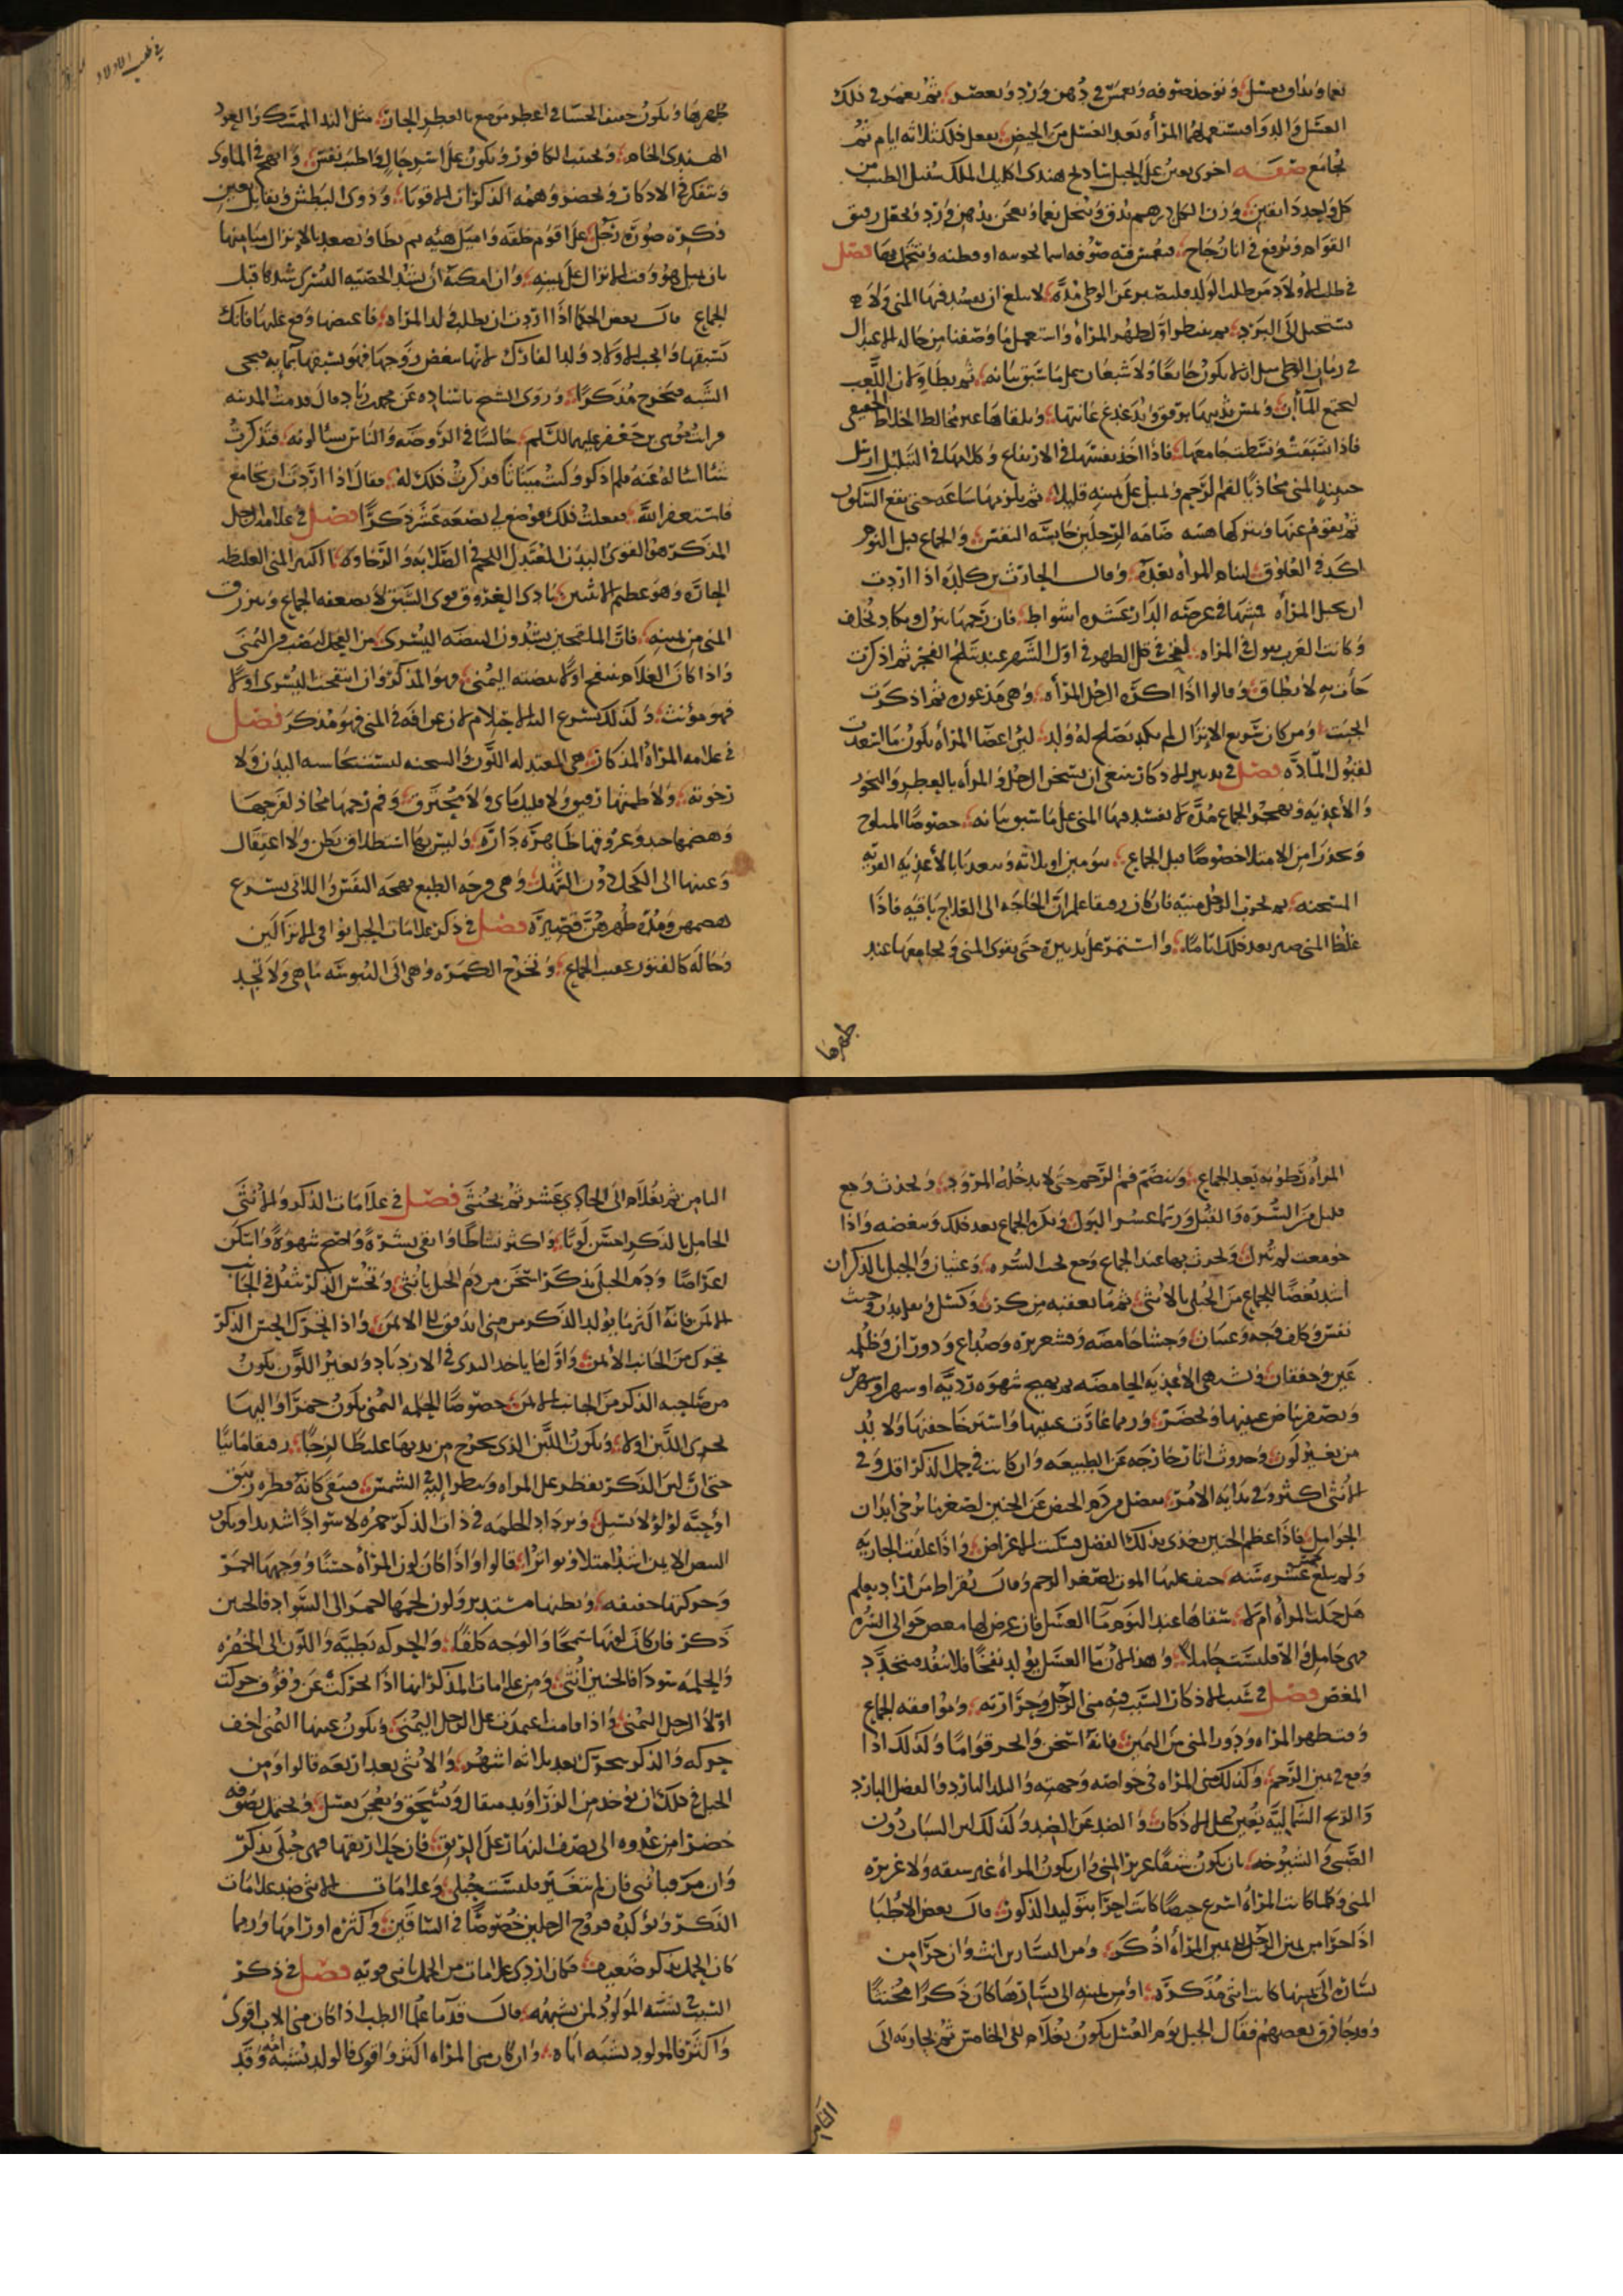 نعما ويداف بعسل ويوخذ صوفه وتغمس في دهن ورد وتعصر ثم تغمر في ذلك
العسل والدوا وتستعملها المرأه بعد الغسل من الحيض يفعل ذلك ثلاثه ايام ثم
يجامع صفه اخرى يعين على الحبل سادج هندى اكليل الملك سنبل الطيب من
كل واحد دانقين وزن الكل درهم يدق وينخل نعما ويعجن بدهن ورد ويجعل رقيق
القوام ويرفع في انا زجاج فيغمس فيه صوفه اسمانجونيه او قطنه وتتحمل بها فصل
في طلب الاولاد من طلب الولد فليصبر عن الوطى مده لا يبلغ ان يفسد فيها المنى ولا
يستحيل الى البرد ثم ينظر اول طهر المرأه واستعمل ما وصفنا من حاله الاعتدال
في زمان الوطى بان لا يكون جايعا ولا شبعان على ما سبق بيانه ثم يطاول اللعب
ليجتمع المآأن ويمس ثدييها برفق ويدغدغ عانتها ويلقاها غير مخالط الخلاط الحقيقى
فاذا شبقت ونشطت جامعها فاذا اخذ نفسها في الارتفاع وكلامها في التبلبل ارسل
حينيذ المنى محاذيا لفم الرحم ويميل على يمينه قليلا ثم يلزمها ساعه حتى يقع السكون
ثم يقوم عنها ويتركها هنيه ضامه الرجلين حابسه النفس والجماع قبل النوم
اكد في العلوق لينام المرأه بعده وقال الحارث بن كلده اذا اردت
ان تحبل المرأه فمشها في عرصه الدار عشره اشواط فان رحمها ينزل ولا يكاد يخلف
وكانت العرب يقول في المراه لقحت في قبل الطهر في اول الشهر عند تبلج الفجر ثم اذكرت
جأت به لا يطاق وقالوا اذا اكره الرجل المرأه وهى مذعوره ثم اذكرت
انجبت ومن كان سريع الانزال لم يكد يصلح له ولد لين اعضا المرأه يكون ما استعدت
لقبول المادّه فصل في تدبير الاذكار ينبغى ان يتسخن الرجل والمرأه بالعطر والبخور
والأغذيه وبهجر الجماع مدّه لا يفسد فيها المنى على ما سبق بيانه خصوصا المسلوح
ويحذرا من الامتلا خصوصا قبل الجماع بيومين او ثلاثه ويتعديا بالأغذيه القويه
المسخنه ثم يجرب الرجل منيّه فان كان رقيقا علم ان الحاجه الى العلاج باقيه فاذا
غلظ المنى صبر بعد ذلك اياما واستمر على تدبيره حتى يقوى المنى ويجامعها عند
طهرها
في طلب الاولاد
طهرها ويكون حينئذ الحسا في اعطر موضع بالعطر الحار مثل الند الممسك والعود
الهندى الخام ويجتنب الكافور ويكون على اسر حال واطيب نفس وابهج في الماوى
ويتفكر في الاذكار ويحضر وهمه الذكران الاقويا وذوى البطش ويقابل بعين
فكره صوره رجل على اقوم خلقه وامثل هيه ثم يطا ويصعد بالانزال ميامنها
بان يميل هو وقت الانزال على يمينه وان امكنه ان يشد الخصيه اليسرى شدا قبل
الجماع قال بعض الحكما اذا اردت ان يطلب في لد المراه فاغضبها وقع عليها فانك
تسبقها وانجب الاولاد ولد الفارك لانها تبغض زوجها فهو يسبقها بمايه فيجى
الشبه فتخرج مذكرا وروى الشيخ باسناده عن محمد زياد قال قدمت المدينه
فرايت موسى بن جعفر عليهما السّلم جالسا في الروضه والناس يسألونه فتذكرت
شئا اساله عنه فلم اذكر وكنت مينا ثا فذكرت ذلك له فقال اذا اردت ان تجامع
فاستغفر الله ففعلت ذلك فوضع لى بضعه عشر ذكرًا فصل في علامه الرجل
المذكر هو القوى البدن المعتدل اللحم في الصلابه والرخاوه الكثير المنى الغليظه
الحاره وهو عظيم الانثيين بادى العروق قوى الشبق لا يضعفه الجماع وينزرق
المنى من يمينه فان الملقحين يشدون البيضه اليسرى من الفحل ليصب من اليمنى
واذا كان الغلام ينتفخ اولا بيضته اليمنى فهو المذكر وان انتفخت اليسرى اولا
فهو مؤنث وكذلك يسرع اليه الاحتلام لا عن آفه في المنى فهو مذكر فصل
في علامه المرأه المذكار هى المعتدله اللون والسحنه ليست بجاسيه البدن ولا
رخوته ولا طمثها رقيق ولا قليل ماى ولا محترق وفم رحمها محاذ لفرجها
وهضمها جيد وعروقها ظاهره داره وليس بها استطلاق بطن ولا اعتقال
وعينها الى الكحل دون الشهله وهى فرحه الطبع بهجه النفس واللاتى يسرع
هضمهن ومده طهرهنّ قصيره فصل في ذكر علامات الحبل توافى الانزالين
وحاله كالفتور عقيب الجماع وتخرج الكمره وهى الى اليبوسه ما هى ولا تجد
المرأه رطوبه بعد الجماع وينضم فم الرحم حتى لا يدخله المرود ويحدث وجع
قليل بين السُّره والقبل وربما عسر البول وتكره الجماع بعد ذلك وتبغضه واذا
جومعت لم تنزل ويحدث بها عند الجماع وجع تحت السُّره وغثيان والحبلى بالذكران
اشد بغضًا للجماع من الحبلى بالانثى ثم ما يعقبه من كرب وكسل وثقل بدن وخبث
نفس وكلف وجه وغثيان وجشا حامضه وقشعريره وصداع ودوران وظلمه
عين وخفقان وتشتهى الأغذيه الحامضه ثم يهيج شهوه رديّه او سهر او شهرين
ويصفر بياض عينها ويخضر وربما غارت عينها واسترخا جفنها ولا بد
من تغير لون وحدوث اثار خارجه عن الطبيعه وان كانت في حمل الذكر اقل وفي
الانثى اكثر وفي بدايه الامر يفضل من دم الحيض عن الجنين لصغره ما يرخى ابدان
الحوامل فاذا عظم الجنين يغذى بذلك الفضل فسكنت الاعراض واذا علقت الجاريه
ولم تبلغ خمس عشره سنه خيف عليها الموت لصغر الرحم وقال بقراط من اراد يعلم
هل حملت المرأه ام لا سقاها عند النوم مآ العسل فان عرض لها مغص حوالى السُّره
فهى حامل والا فليست حاملا وهذا لان ما العسل يولد نفخًا فلا ينفذ فيتجدد
المغص فصل في سبب الاذكار السّبب فيه منى الرّجل وحرارته وموافقه الجماع
وقت طهر المراه ودور المنى من اليمين فانه اسخن واثخن قوامًا وكذلك اذا
وقع في يمين الرحم وكذلك منى المرأه في خواصه وجهته والبلد البارد والفصل البارد
والريح الشّماليه يعين على الاذكار والضد عن الضد وكذلك لين الشباب دون
الصّبى والشيوخه بان يكون شبقًا غزير المنى وان يكون المرأه غير سبقه ولا غزيره
المنى وكلما كانت المرأه اسرع حيضًا كانت احرا بتوليد الذكور وقال بعض الأطبا
اذا جرا من يمين الرجل الى يمين المرأه اذكر ومن اليسارين انث وان جرا من
يساره الى يمينها كانت انثى مذكرّه او من يمينه الى يسارها كان ذكرًا مخنثًا
وقد جازف بعضهم فقال الحبل يوم الغسل يكون بغلام الى الخامس ثم بجاريه الى
الثامن
الثامن ثم بغلام الى الحادى عشر ثم بخنثى فصل في علامات الذكر والانثى
الحامل بالذكر احسن لونًا واكثر نشاطًا وانقى بشرّة واصح شهوةً واسكن
اعراضًا ودم الحبلى بذكر اسخن من دم الحبلى بانثى وتحس الذكر بثقل في الجانب
الايمن فانه اكثر ما يولد الذكر من منى اندفق الى الايمن واذا تحرك الجنين الذكر
تحرك من الجانب الأيمن واول ما ياخذ الثدى في الازدياد وتغير اللون يكون
من صاحبه الذكر من الجانب الايمن خصوصا الحلمه اليمنى يكون حمرا واليها
يجرى اللبن اولا ويكون اللبن الذى يخرج من ثديها غليظًا لزجًا لا رقيقا مائيا
حتى ان لبن الذكر يقطر على المرآه وينظر اليه في الشمس فيبقى كانه قطره زيبق
او حبّه لؤلؤ لا يسيل ويزداد الحلمه في ذات الذكر حمره لا سوادًا شديدا ويكون
النبض الايمن اشد امتلا وتواترا قالوا واذا كان لون المرأه حسنًا ووجهها احمر
وحركتها خفيفه وبطنها مستدير ولون لحمها احمر الى السّواد فالجنين
ذكر فان كان لونها سمجًا والوجه كلفًا والحركه بطيّه واللون الى الخضره
والحلمه سودا فالجنين انثى ومن علامات المذكر انها اذا تحركت عن وقوف حركت
اولا الرجل اليمنى واذا قامت اعتمدت على الرجل اليمنى ويكون عينها اليمنى اخف
حركه والذكر يتحرك بعد ثلاثه اشهر والانثى بعد اربعه قالوا ومن
الحيل في ذلك ان يوخذ من الزراوند مثقال ويسحق ويعجن بعسل ويحتمل بصوفه
خضرا من غدوه الى نصف النهار على الريق فان حلا ريقها فهى حبلى بذكر
وان مرّ فبانثى فان لم يتغير فليست بحبلى وعلامات الانثى ضد علامات
الذكر ويؤكده قروح الرجلين خصوصًا في السّاقين وكثره اورامها وربما
كان الحمل بذكر ضعيف فكان اردى علامات من الحمل بانثى قويه فصل في ذكر
السبب في شبه المولود لمن يشبهه قال قدما علما الطب اذا كان منى الاب اقوى
واكثر فالمولود يشبه اباه وان كان منى المراه اكثر واقوى فالولد يشبه امه وقد